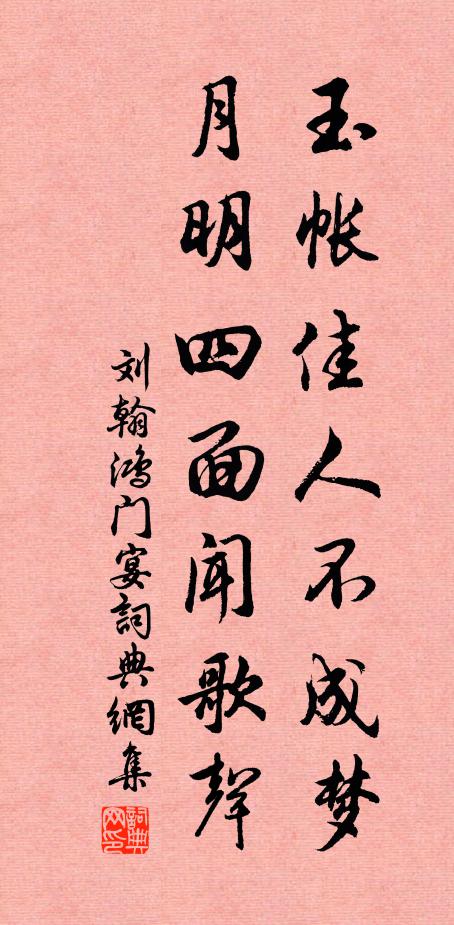 玉帐佳人不成梦
月明四面闻歌声
刘翰鸿门宴詞典網集
詞典
网印